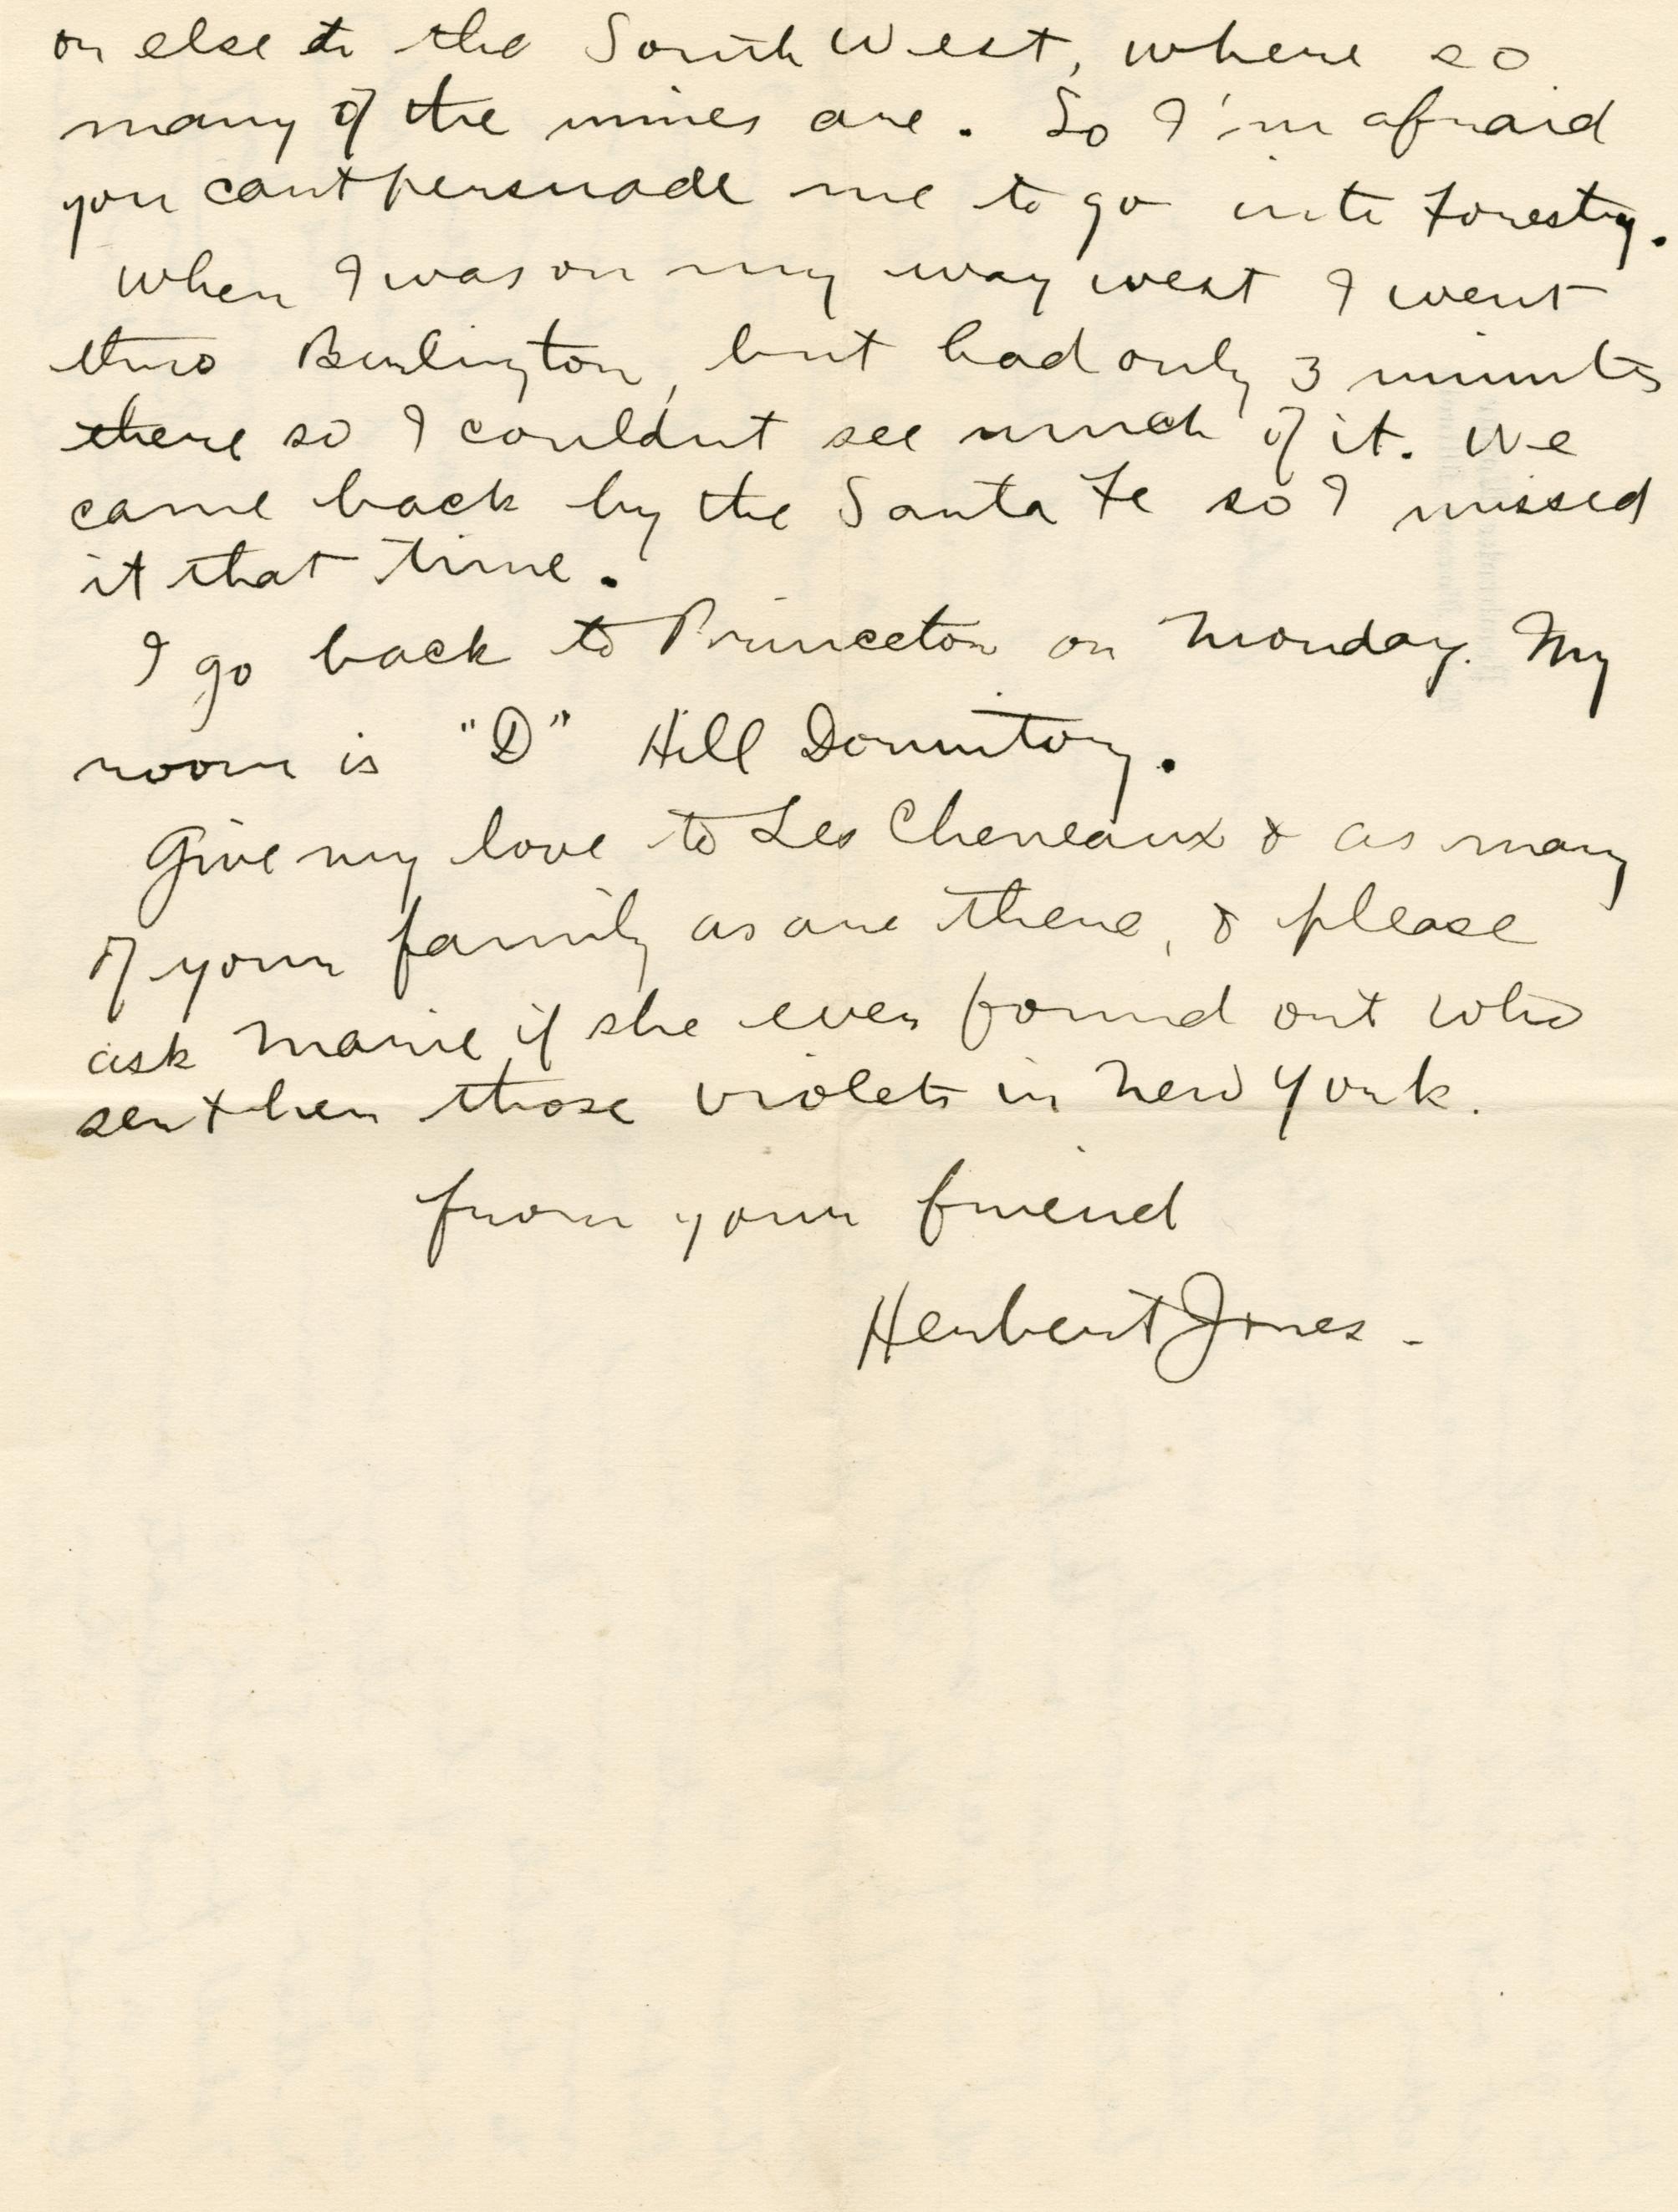 or else to the South West, where so
many of the mines are. So I'm afraid
you cant persuade me to go into Forestry.
When I was on my way west I went
thro Burlington, but had only 3 minutes
there so I couldnt see much of it. We
came back by the Santa Fe so I missed
it that time.
I go back to Princeton on Monday. My
room is "D" Hill Dormitory.
Give my love to Les Cheneaux & as many
of your family as are there, & please
ask Marie if she ever found out who
sent her those violets in New York.
from your friend
Herbert Jones -